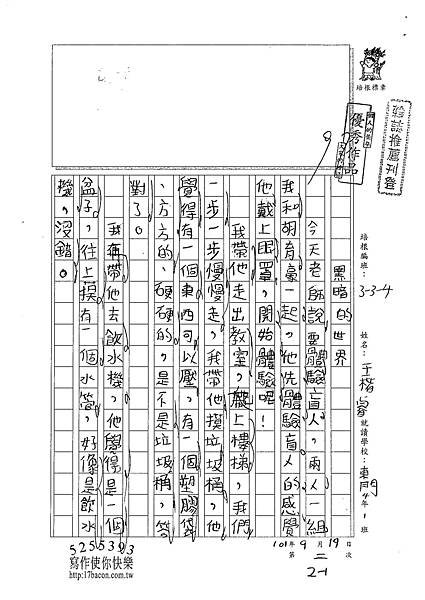 培根標章
雜誌推薦刊登
優秀作品
培根編班：3-3-4 姓名：王楷家 就讀學校：東門4年1班
101年9月19日
第二次
2-1
黑暗的世界
今天老師說要體驗盲人，兩人一組
我和胡育豪一起，他先體驗盲人的感覺
他戴上眼罩，開始體驗呢！
我帶他走出教室，爬上樓梯，我們
一步一步慢慢走，我帶他摸垃圾桶，他
覺得有一個東西可以壓，有一個塑膠袋
、方方的、硬硬的，是不是垃圾桶，答
對了。
我再帶他去飲水機，他覺得是一個
盆子，往上摸有一個水管，好像是飲水
機，沒錯。
5255393
寫作使你快樂
http://17bacon.com.tw